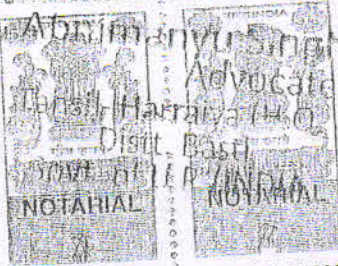 Abhimanyu Singh
Advocate
Tahsil Harraiya (H.Q.
Distt. Basti
Govt. of U.P. (INDIA)
INDIA
NOTARIAL NOTARIAL